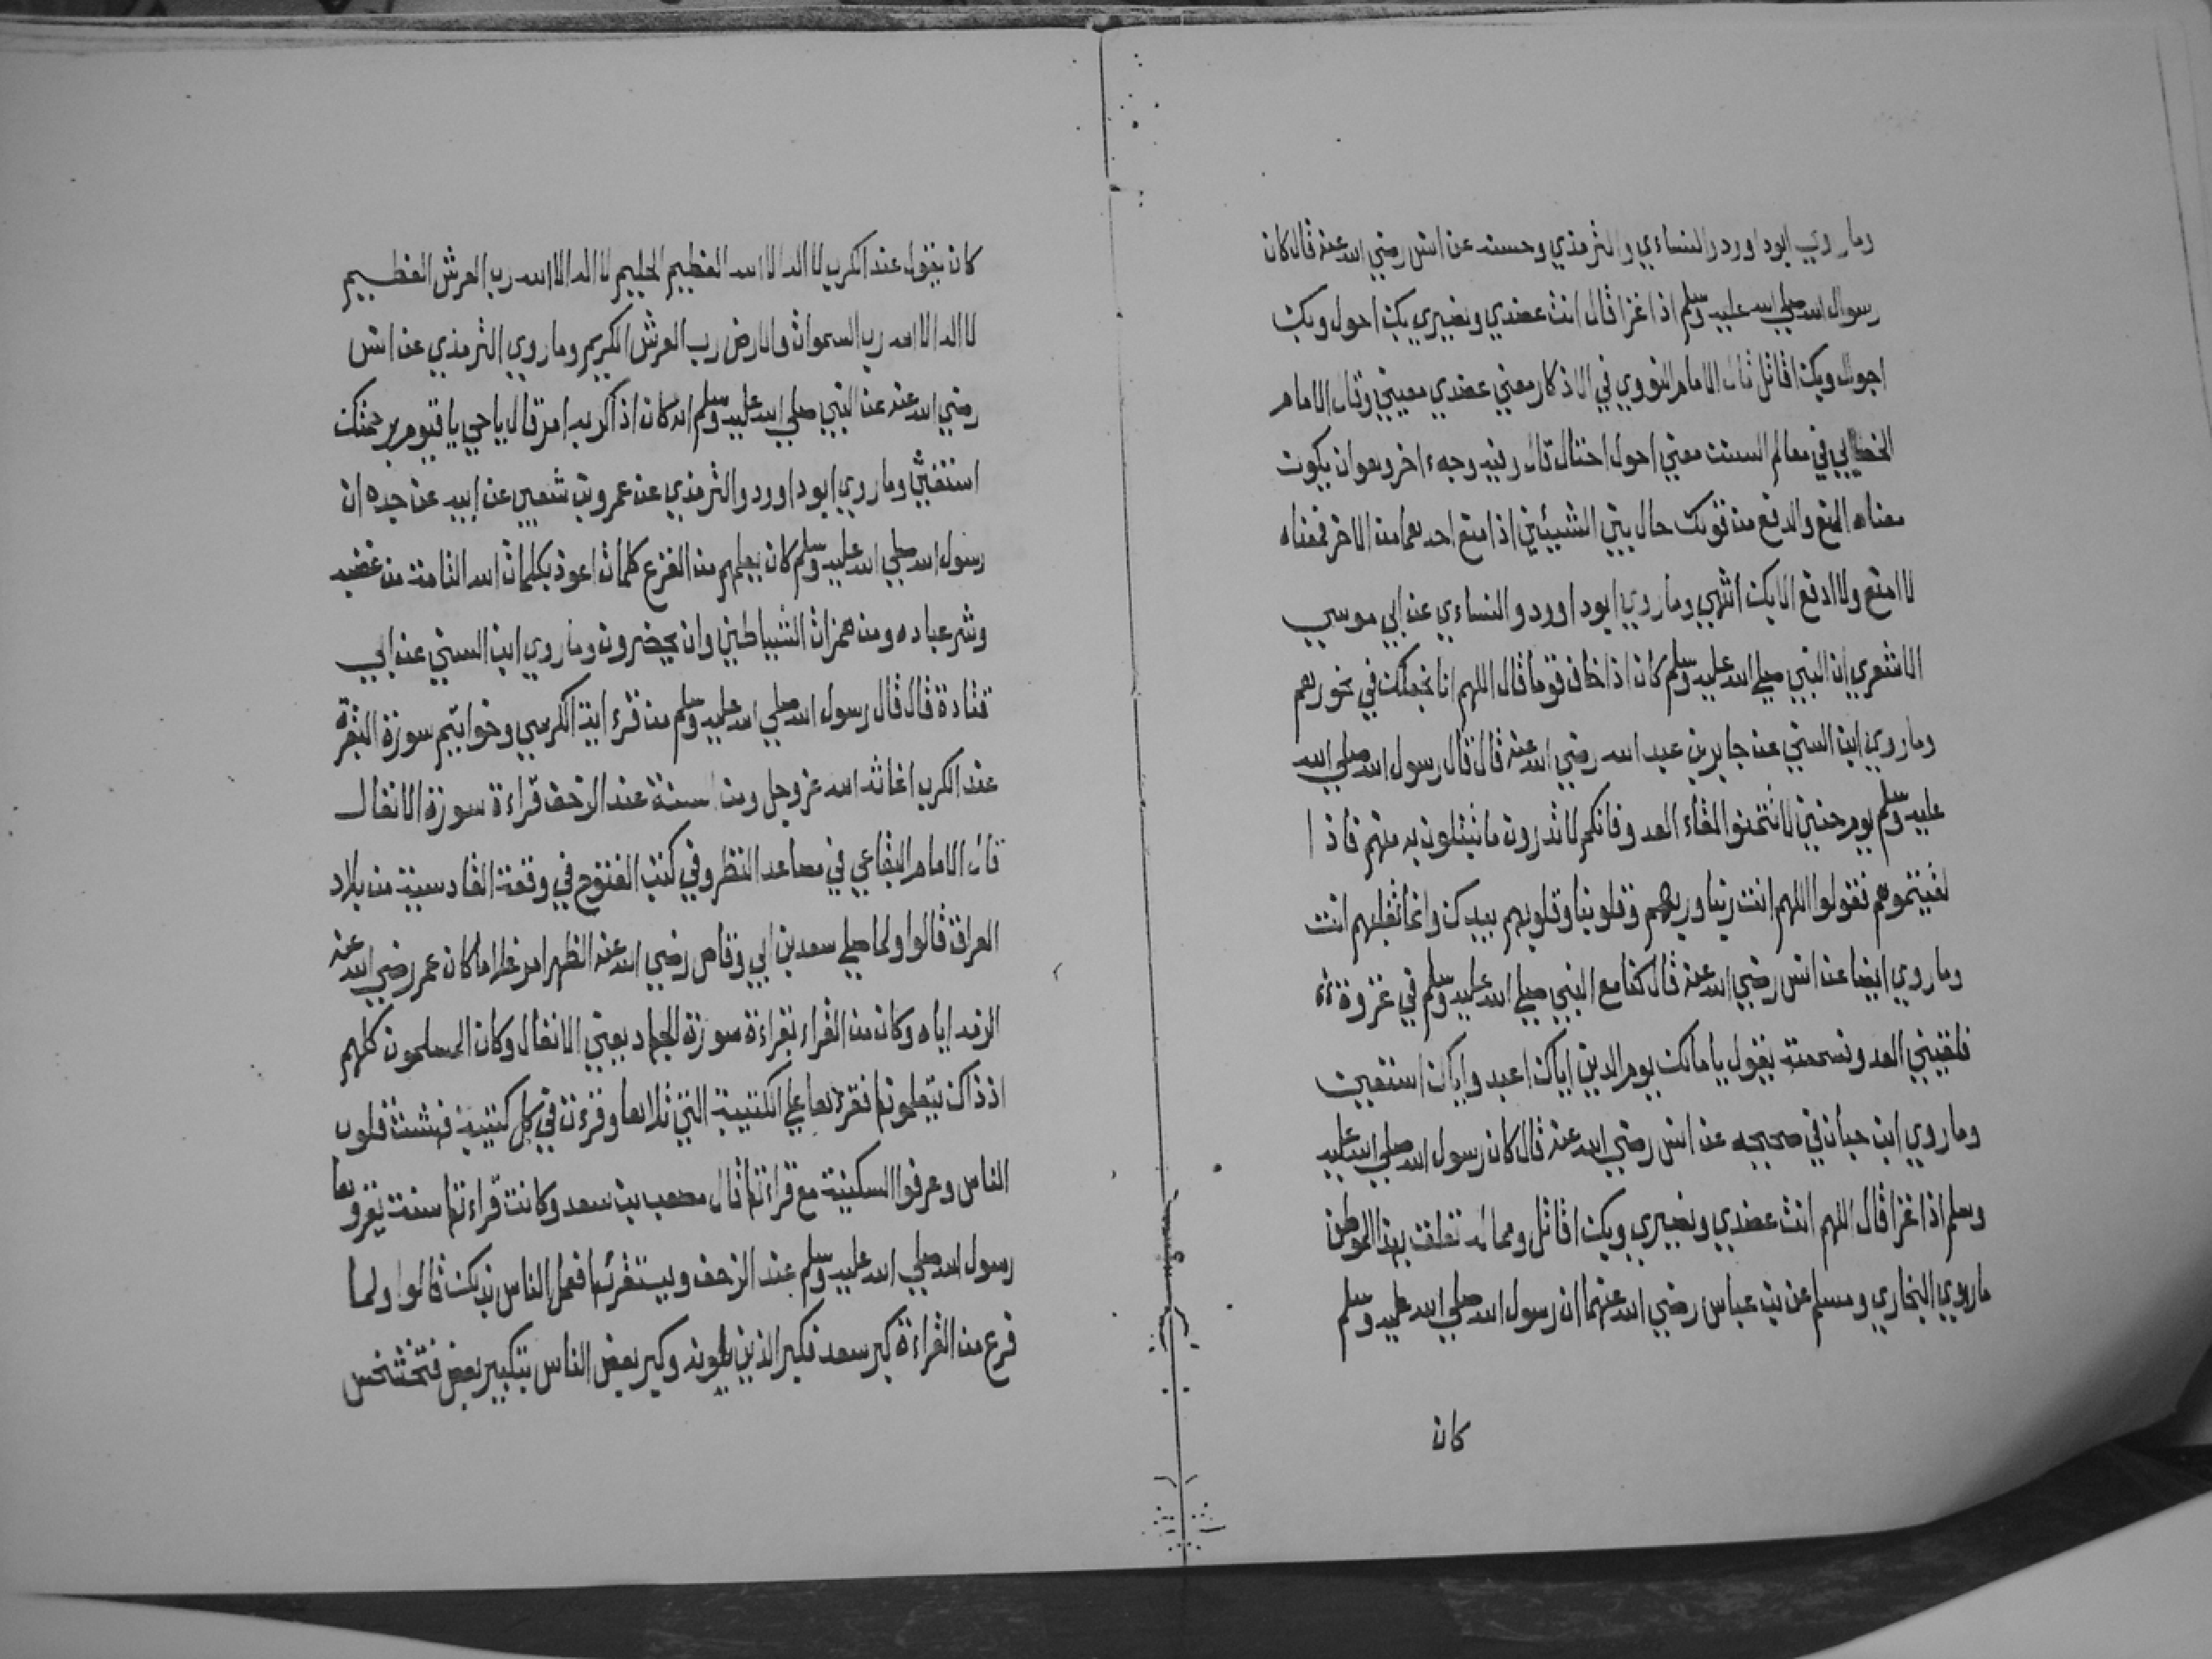 وما روي ابوداورد والنساءي والترمذي وحسنه عن انس رضي الله عنه قال كان
رسوال الله صلي الله عليه وسلم اذا غزا قال انت عضدي ونصيري بك احول وبك
اجول وبك اقاتل قال الامام النووي في الاذكار معني عضدي معيني وقال الامام
الخطابي في معالم السنن معني احول احتال قال وفيه وجه اخر وهو ان يكون
معناه المنع والدفع من قولك حال بين الشيئين اذا منع احدهما من الاخر فمعناه
لا امنع ولا ادفع الا بك انتهي وما روي ابوداورد والنساءي عن ابي موسي
الاشعري ان النبي صلي الله عليه وسلم كان اذا خاف قوما قال اللهم انا نجعلك في نحورهم
وما روي ابن السني عن جابر بن عبد الله رضي الله عنه قال قال رسول الله صلي الله
عليه وسلم يوم حنين لا تتمنوا لقاء العدو فانكم لا تدرون ما تبتلون به منهم فاذا
لقيتموهم فقولوا اللهم انت ربنا وربهم وقلوبنا وقلوبهم بيدك وانما تغلبهم انت
وما روي ايضا عن انس رضي الله عنه قال كنا مع النبي صلي الله عليه وسلم في غزوة
فلقيني العدو فسمعته يقول يا مالك يوم الدين اياك اعبد واياك استعين
وما روي ابن حبان في صحيحه عن انس رضي الله عنه قال كان رسول الله صلي الله عليه
وسلم اذا غزا قال اللهم انت عضدي ونصيري وبك اقاتل ومما له تعلق بهذا الموطن
ما روي البخاري ومسلم عن بن عباس رضي الله عنهما ان رسول الله صلي الله عليه وسلم
كان
كان يقول عند الكرب لا اله الا الله العظيم الحليم لا اله الا الله رب العرش العظيم
لا اله الا الله رب السموات والارض رب العرش الكريم وما روي الترمذي عن انس
رضي الله عنه عن النبي صلي الله عليه وسلم انه كان اذا اكربه امر قال يا حي يا قيوم برحمتك
استغيث وما روي ابوداورد والترمذي عن عمرو بن شعيب عن ابيه عن جده ان
رسول الله صلي الله عليه وسلم كان يعلمهم من الفزع كلمات اعوذ بكلمات الله التامة من غضبه
وشر عباده ومن همزات الشياطين وان يحضرون وما روي ابن السني عن ابي
قتادة قال قال رسول الله صلي الله عليه وسلم من قرء اية الكرسي وخواتيم سورة البقرة
عند الكرب اغاثه الله عز وجل ومن السنة عند الزحف قراءة سورة الانفال
قال الامام البقاعي في مصاعد النظر وفي كتب الفتوح في وقعة القادسية من بلاد
العراق قالوا ولما صلي سعد بن ابي وقاص رضي الله عنه الظهر امر غلاما كان عمر رضي الله عنه
الزمه اياه وكان من القراء بقراءة سورة الجهاد يعني الانفال وكان المسلمون كلهم
اذ ذاك يتعلمونها فقرءها علي الكتيبة التي تلاها وقرءت في كل كتيبة فهشت قلوب
الناس وعرفوا السكينة مع قراءتها قال مصعب بن سعد وكانت قراءتها سنة يقروها
رسول الله صلي الله عليه وسلم عند الزحف ويستقرئها فعمل الناس بذلك قالوا ولما
فرغ من القراءة كبر سعد فكبر الذين يلونه وكبر بعض الناس بتكبير بعض